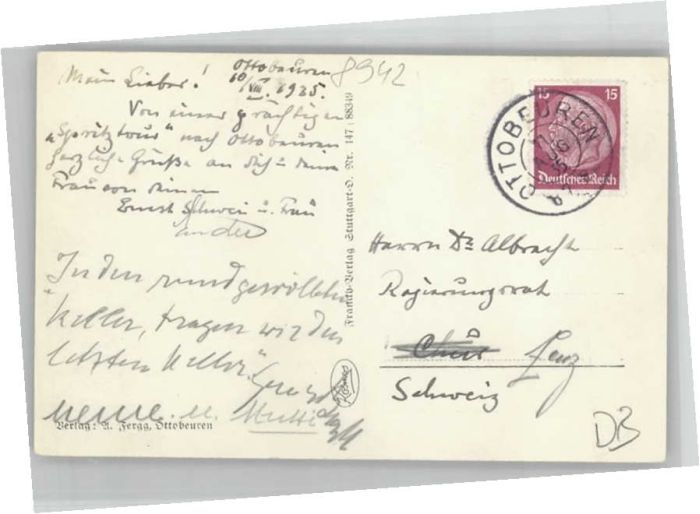 Ottobeuren
10/VIII. 1935.
8942
Mein Lieber!
Von einer prächtigen
„Spritztour" nach Ottobeuren
herzliche Grüße an dich u. deine
Frau von deinem
Ernst u. Frau
In den rundgewölbten
Keller, tragen wir den
letzten Heller."
u. Mutti
Verlag: A. Fergg, Ottobeuren
Franckh-Verlag Stuttgart-O. Nr. 147 / 88349
15 15
Deutsches Reich
OTTOBEUREN
Herrn Dr. Albrecht
Regierungsrat
Chur Lenz
Schweiz
DB